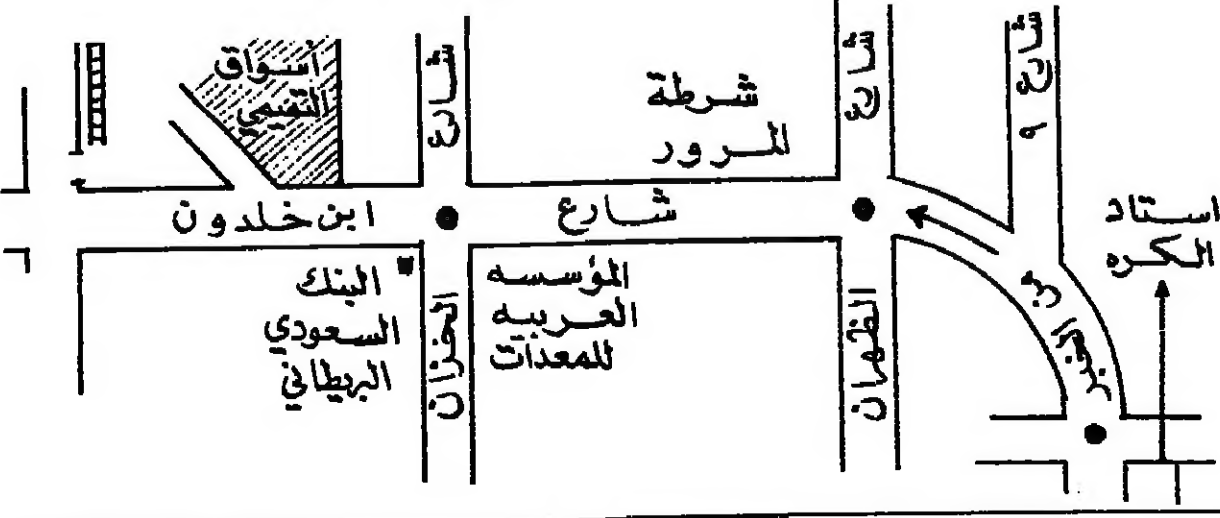 أسواق
التميمي
شارع
شرطة
المرور
شارع
شارع ٩
استاد
الكره
شارع
ابن خلدون
من الخبر
البنك
السعودي
البريطاني
الخزان
المؤسسه
العربيه
للمعدات
الظهران